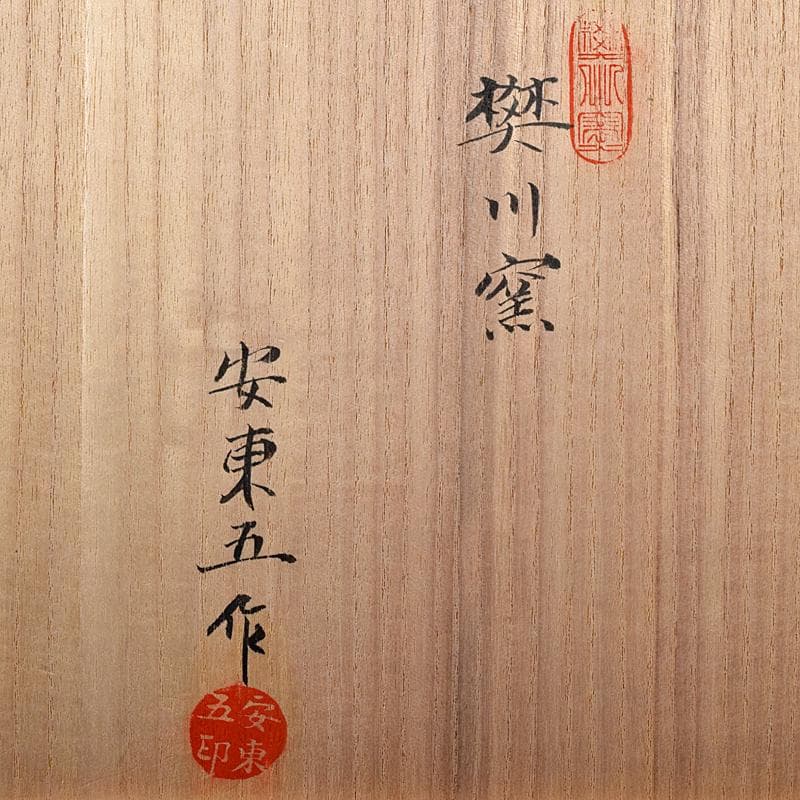 樊川窯
安東五作
安東五印